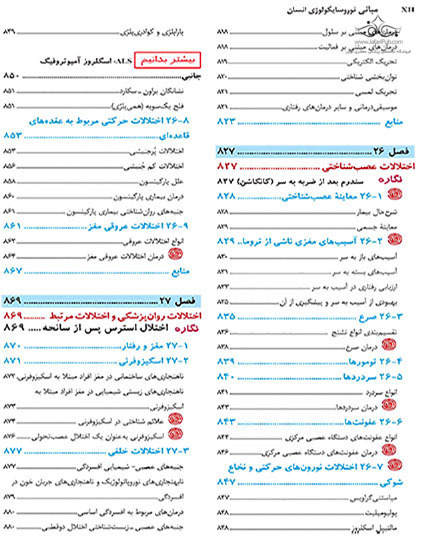 XII مبانی نوروسایکولوژی انسان
درمان‌های مبتنی بر سلول ۸۱۸
درمان‌های مبتنی بر فعالیت ۸۱۸
تحریک الکتریکی ۸۱۹
توان‌بخشی شناختی ۸۲۰
تحریک لمسی ۸۲۱
موسیقی‌درمانی و سایر درمان‌های رفتاری ۸۲۱
منابع ۸۲۳
فصل ۲۶ ۸۲۷
اختلالات عصب‌شناختی ۸۲۷
نگاره سندرم بعد از ضربه به سر (کانکاشن) ۸۲۷
۲۶-۱ معاینهٔ عصب‌شناختی ۸۲۸
شرح‌حال بیمار ۸۲۸
معاینهٔ جسمی ۸۲۹
۲۶-۲ آسیب‌های مغزی ناشی از تروما ۸۲۹
آسیب‌های باز به سر ۸۳۰
آسیب‌های بسته به سر ۸۳۱
ارزیابی رفتاری در آسیب به سر
بهبودی از آسیب به سر و پیشگیری از آن
۲۶-۳ صرع ۸۳۵
تقسیم‌بندی انواع تشنج ۸۳۶
درمان صرع ۸۳۸
۲۶-۴ تومورها ۸۳۹
۲۶-۵ سردردها ۸۴۰
انواع سردرد ۸۴۱
درمان سردردها ۸۴۳
۲۶-۶ عفونت‌ها ۸۴۳
انواع عفونت‌های دستگاه عصبی مرکزی ۸۴۴
درمان عفونت‌های دستگاه عصبی مرکزی
۲۶-۷ اختلالات نورون‌های حرکتی و نخاع
شوکی ۸۴۷
میاستنی‌گراویس ۸۴۷
پولیومیلیت ۸۴۸
مالتیپل اسکلروز ۸۴۸
پاراپلژی و کوادری‌پلژی ۸۴۹
بیشتر بدانیم ALS، اسکلروز آمیوتروفیک
جانبی ۸۵۰
نشانگان براون ـ سکارد ۸۵۱
فلج یک‌سویه (همی‌پلژی) ۸۵۱
۲۶-۸ اختلالات حرکتی مربوط به عقده‌های
قاعده‌ای ۸۵۳
اختلالات پُرجنبشی ۸۵۳
اختلالات کم جُنبشی ۸۵۶
علل پارکینسون ۸۵۸
درمان بیماری پارکینسون ۸۶۰
جنبه‌های روان‌شناختی بیماری پارکینسون ۸۶۱
۲۶-۹ اختلالات عروقی مغز ۸۶۱
انواع اختلالات عروقی ۸۶۲
درمان اختلالات عروقی مغز ۸۶۴
منابع ۸۶۷
فصل ۲۷ ۸۶۹
اختلالات روان‌پزشکی و اختلالات مرتبط ۸۶۹
نگاره اختلال استرس پس از سانحه ۸۶۹
۲۷-۱ مغز و رفتار ۸۷۰
۲۷-۲ اسکیزوفرنی ۸۷۱
ناهنجاری‌های ساختمانی در مغز افراد مبتلا به اسکیزوفرنی ۸۷۲
ناهنجاری‌های زیستی شیمیایی در مغز افراد مبتلا به
اسکیزوفرنی ۸۷۳
علائم شناختی در اسکیزوفرنی ۸۷۴
اسکیزوفرنی به‌عنوان یک اختلال عصب‌تحولی ۸۷۶
۲۷-۳ اختلالات خلقی ۸۷۷
جنبه‌های عصبی-شیمیایی افسردگی ۸۷۷
ناهنجاری‌های نوروپاتولوژیک و ناهنجاری‌های جریان خون در
افسردگی ۸۷۹
درمان‌های مربوط به افسردگی اساسی ۸۸۰
جنبه‌های عصبی - زیست‌شناختی اختلال دوقطبی ۸۸۰